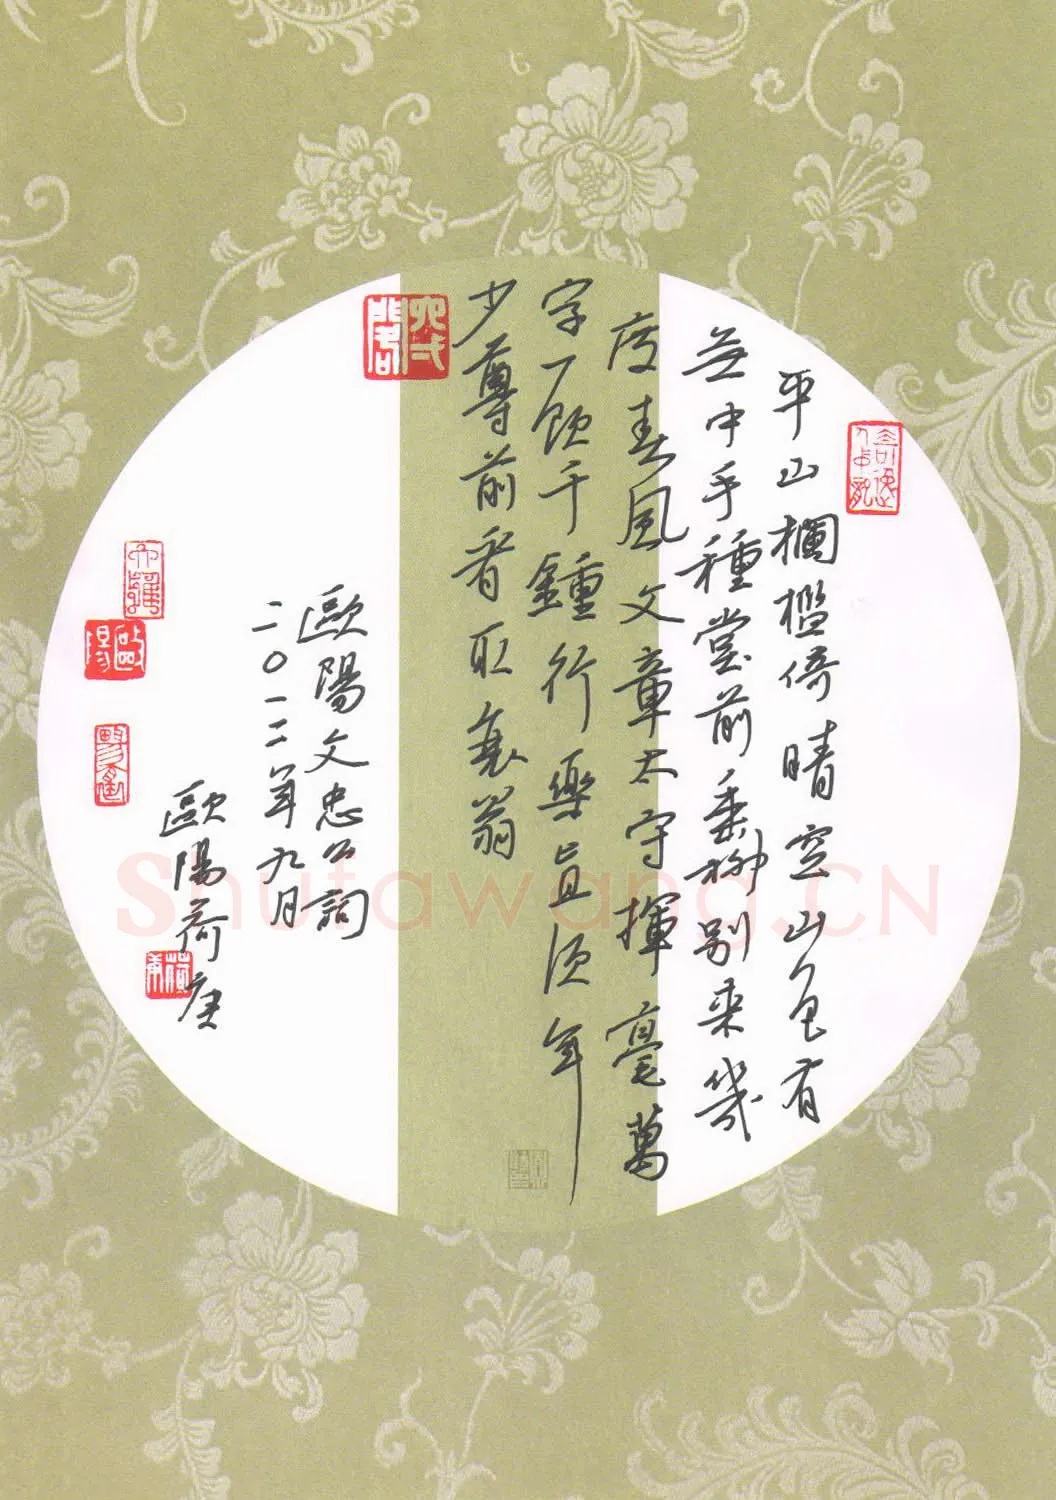 平山欄檻倚晴空山色有
無中手種堂前垂柳別来幾
度春風文章太守揮毫萬
字一飲千鍾行樂直須年
少尊前看取衰翁
歐陽文忠公詞
二〇一二年九月
歐陽荷庚
歐陽
荷庚
Shufawang.CN